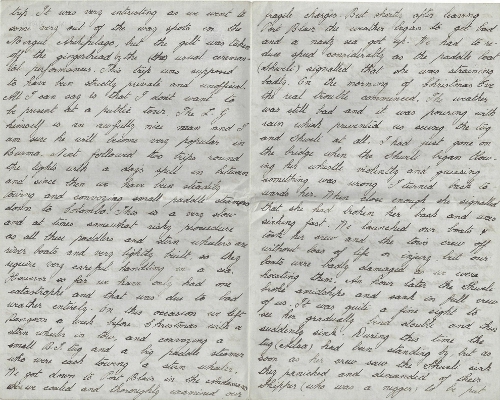 trip. It was very interesting as we went to
some very out of the way spots in the
Mergui Archipelago, but the gilt was taken
off the gingerbread by the usual
performances. This trip was supposed
to have been strictly private and unofficial.
All I can say is that I don't want to
be present at a public tour. The L.G.
himself is an awfully nice man and I
am sure he will become very popular in
Burma. Next followed two trips round
the lights with a days spell in between
and since then we have been steadily
towing and convoying small paddle steamers
down to Colombo. This is a very slow
and at times somewhat risky procedure
as all these paddlers and stern wheelers are
river boats and very lightly built, so they
require very careful handling in a sea.
However so far we have only had one
catastrophe and that was due to bad
weather entirely. On this occasion we left
Rangoon a week before Christmas with a
stern wheeler in tow, and convoying a
small tug and a big paddle steamer
who were each towing a stern wheeler.
We got down to Port Blair in the
we could and thoroughly examined our
fragile charges. But shortly after leaving
Port Blair the weather began to get bad
and a nasty sea got up. We had to re-
duce speed considerably as the paddle boat
signalled that she was straining
badly. On the morning of Christmas Eve
the real trouble commenced. The weather
was still bad and it was pouring with
rain which prevented us seeing the tug
and at all. I had just gone on
the bridge when the began blow-
ing her whistle violently and guessing
something was wrong I turned back to
wards her. When close enough she signalled
that she had broken her back and was
sinking fast. We launched our boats &
took her crew and the tows crew off
without loss of life or injury but our
boats were badly damaged as we were
hoisting them. An hour later the
broke amidships and sank in full view
of us. It was quite a fine sight to
see her gradually bend double and then
suddenly sink. During this time the
tug had been standing by but as
soon as her crew saw the sink
they panicked and demanded of their
skipper (who was a nigger) to be put